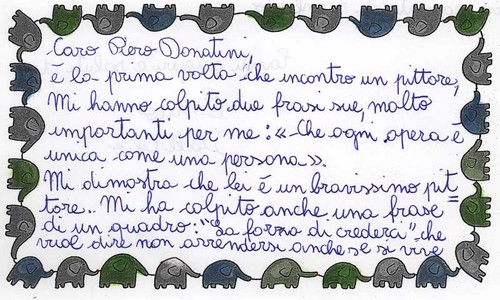 Caro Piero Donatini,
é la prima volta che incontro un pittore,
Mi hanno colpito due frasi sue, molto
importanti per me: «Che ogni opera è
unica come una persona».
Mi dimostra che lei é un bravissimo pit=
tore.. Mi ha colpito anche una frase
di un quadro: "La forza di crederci" che
vuol dire non arrendersi anche se si vive